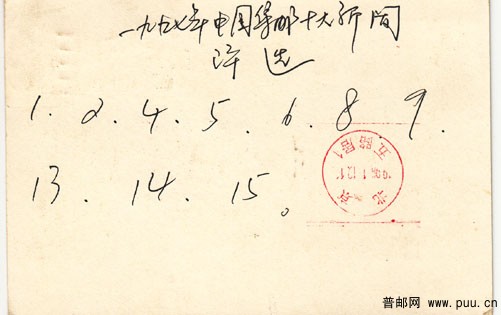 一九九七年中国集邮十大新闻
评选
1. 2. 4. 5. 6. 8. 9.
13. 14. 15。
北京
五路居1
普邮网 www.puu.cn